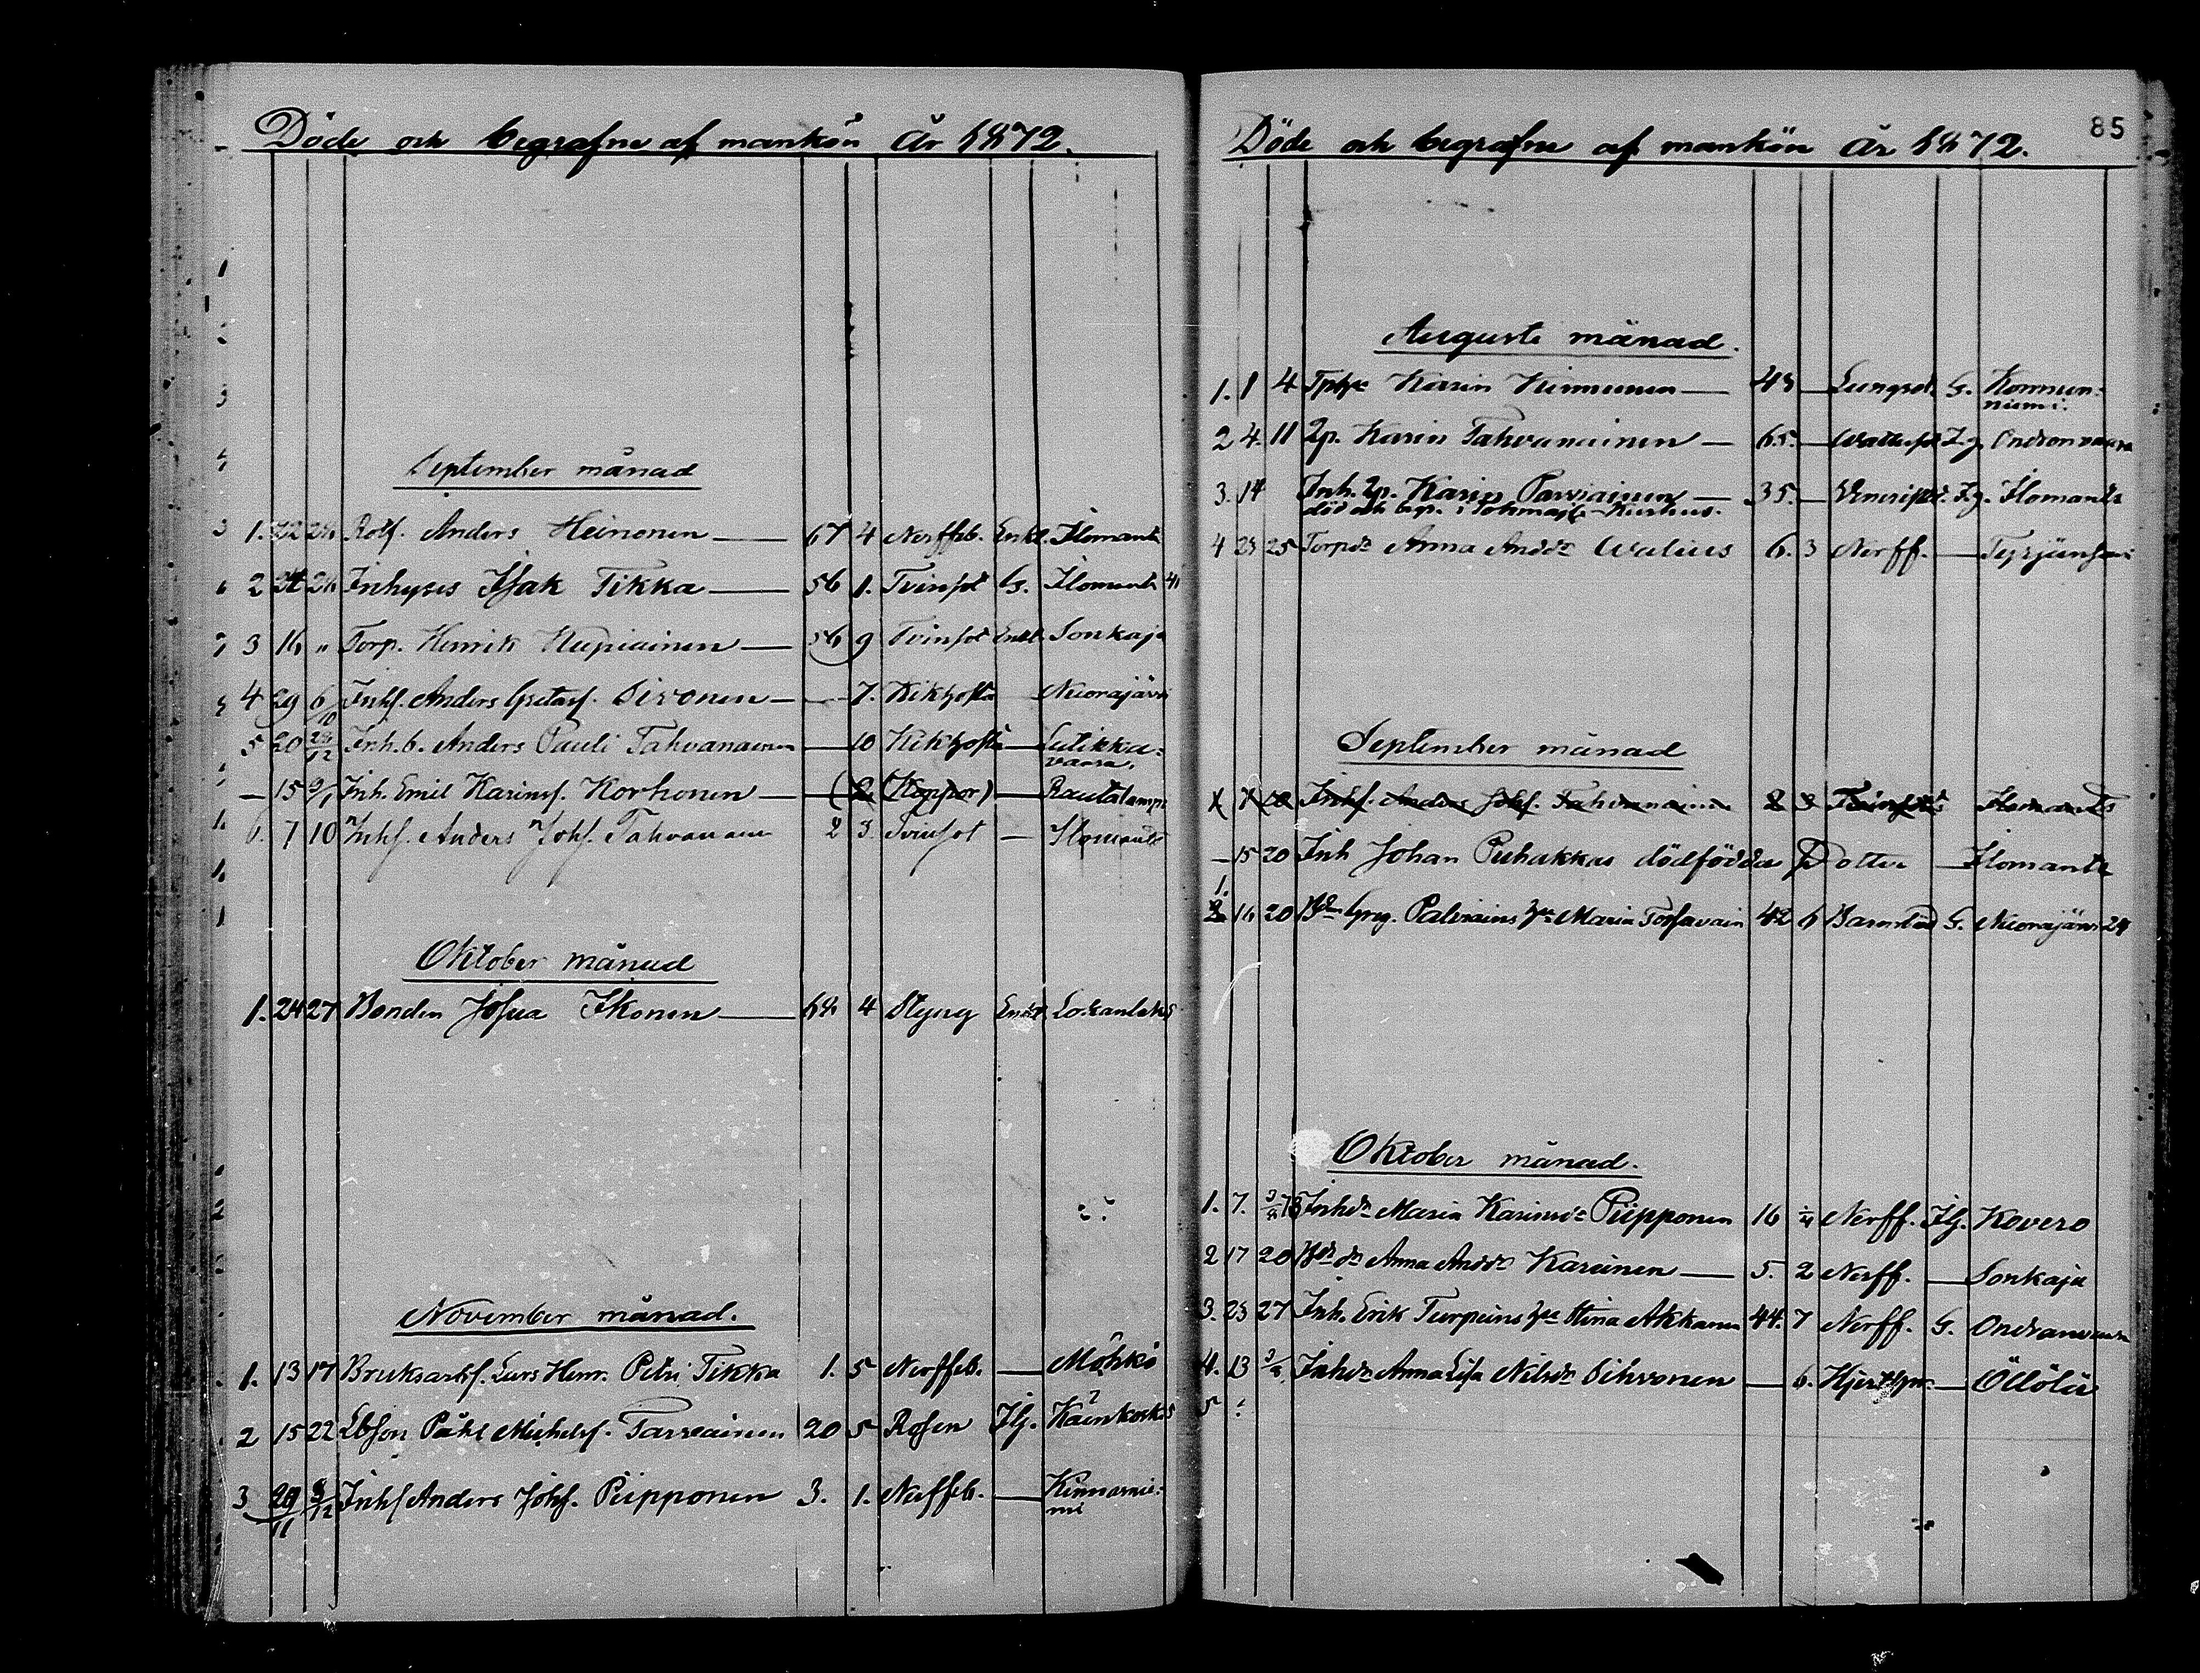 Döde och begrafne af mankön År 1872.
September månad
1. 22 28 Rotf. Anders Heinonen — 67 4 Nerffeb. Enkl. Ilomants
2 24 28 Inhyses Isak Tikka — 56 1. Tvinsot G. Ilomants 41
3 16 " Torp. Henrik Hupiainen — 56 9 Tvinsot Enkl. Sonkaja
4 29 6/10 Inhs. Anders Gretas. Sivonen — — 7. Kikhosta — Nuorajärvi
5 20 28/12 Inh. b. Anders Pauli Tahvanainen — 10 Kikhosta — Lutikka-
vaara.
— 15 Inh. Emil Karinsf. Korhonen — ( 2 (Koppor) — Rautalampi
6. 7 10 Inhs. Anders Johs. Tahvanain 2 3 Tvinsot — Ilomants
Oktober månad
1. 24 27 Bonden Josua Ikonen — 68 4 Styng Enkl.
November månad.
1. 13 17 Bruksarbs. Lars Henr. Petri Tikka 1. 5 Nerffeb. — Möhkö
2 15 22 Lbson Påhl Michels. Tarvainen 20 5 Rosen Ilg.
3 29/11 8/12 Inhs Anders Johs. Piipponen 3. 1. Nerffeb. — Kinnarnie-
mi
Döde och begrafne af mankön År 1872.
85
Augusti månad.
1. 1 4 Karin Kinnunen — 48 — Lungsot. G. Konnun-
niemi.
2 4. 11 Ip. Karin Tahvanainen — 65. — Wattusot I.g. Ondronvaara
3. 14 Inh. Ip. Karin Parviainen — 35. — I.g. Ilomants
död och begr. i Tohmaj.
4 23 25 Torpdr Anna Andsdr Walius 6. 3 Nerff. — Tyrjänsaari
September månad
1 7 10 Inhs. Anders Johs. Tahvanainen 2 3 Tvinsot Ilomants
— 15 20 Inh Johan Puhakkas dödfödda Dotter — Ilomants
1.
2 16 20 Greg. Palviains Maria Torsavain 42 6 Barnsäd G. Nuorajärvi 24
Oktober månad.
1. 7. Inhdr Maria Karinsdr Piipponen 16 Nerff. Ilg. Kovero
2 17 20 Anna Andsdr Karinen — 5. 2 Nerff. — Sonkaja
3. 23 27 Inh. Erik Turpeins Stina Akkanen 44. 7 Nerff. G. Ondronvaara
4. 13 Inhdr Anna Lisa Nilsdr Sihvonen — 6. — Öllölä
5